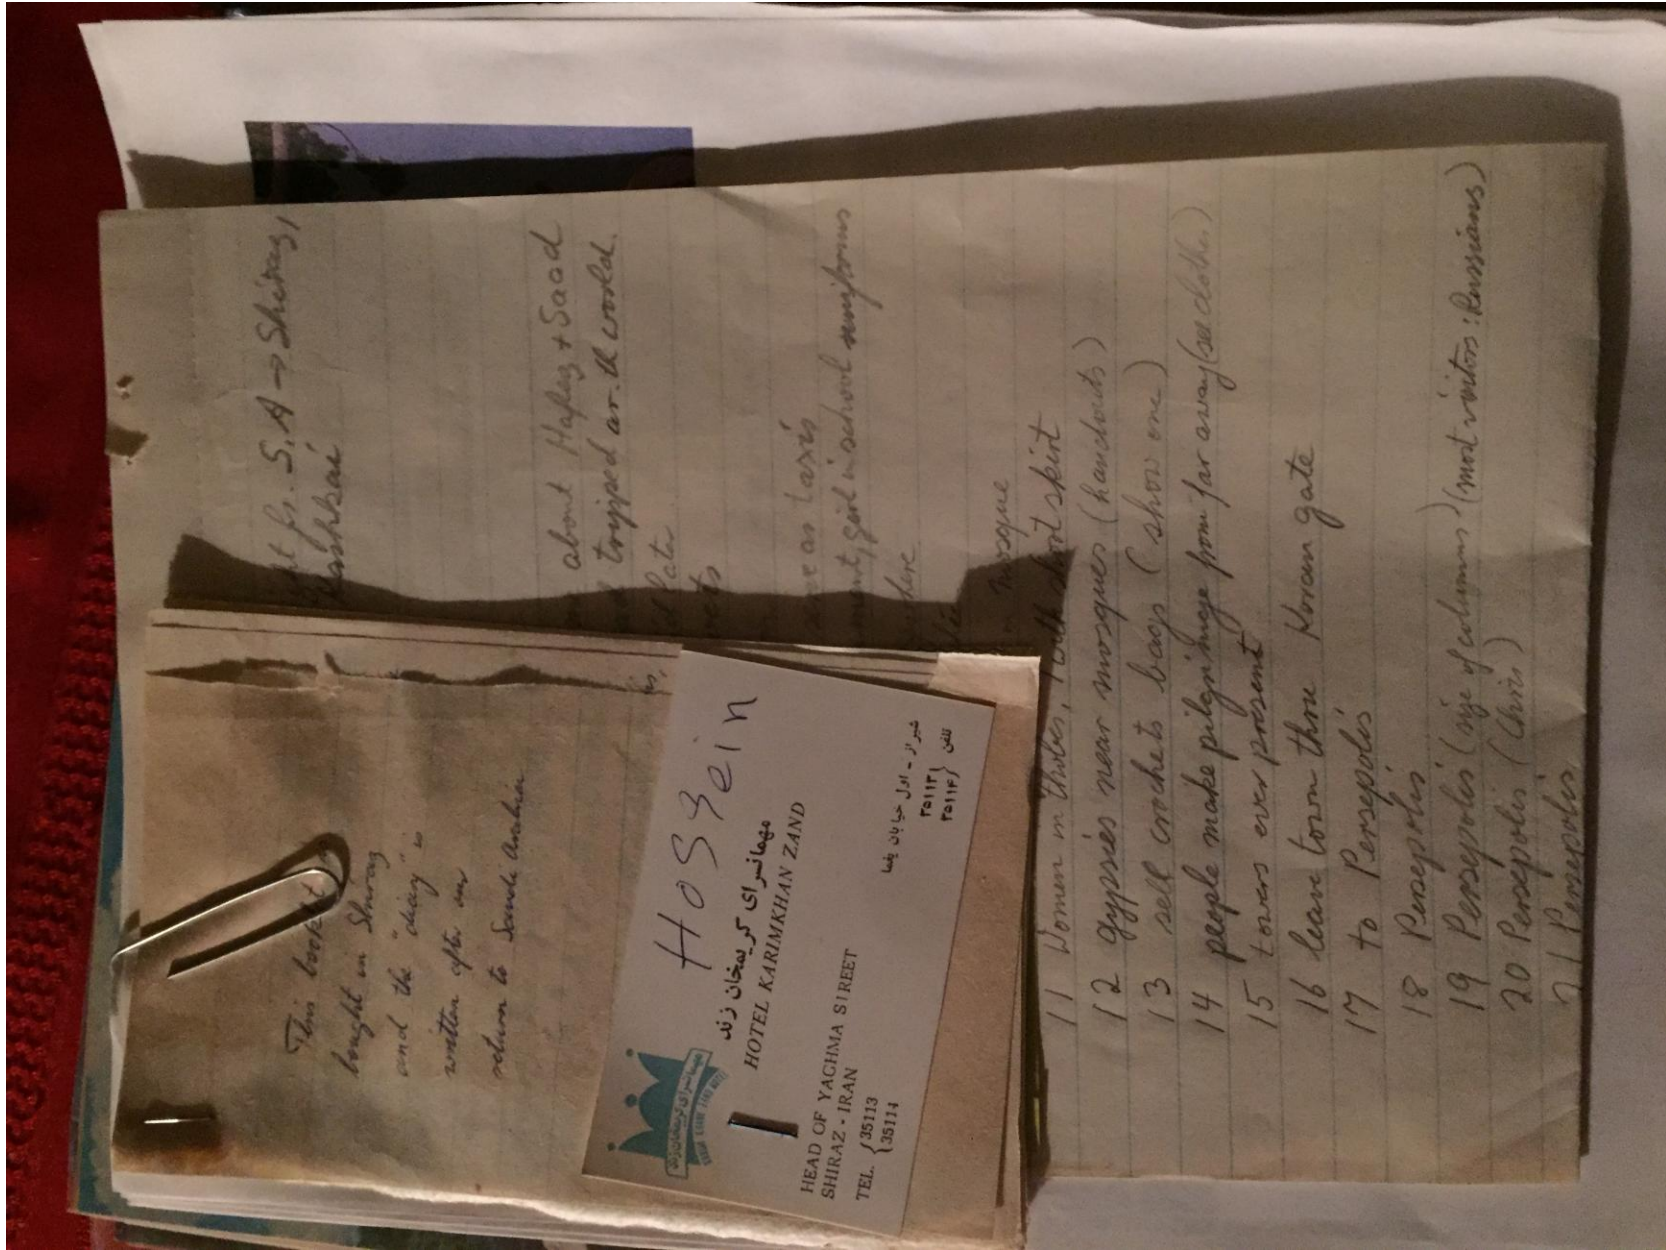 This booklet
bought in Shiraz
and the "diary" is
written after our
return to Saudi Arabia
Hossein
مهمانسرای کریمخان زند
مهمانسرای کریمخان زند
HOTEL KARIMKHAN ZAND
HEAD OF YAGHMA STREET
SHIRAZ - IRAN
TEL. {35113
{35114
شیراز - اول خیابان یغما
تلفن {۳۵۱۱۳
۳۵۱۱۴
fr. S.A → Shiraz,
about Hafez + Saad
tripped ar. the world.
as taxis
girl in school uniforms
mosque
11 Women in thobes, short skirt
12 gypsies near mosques (handouts)
13 sell crochets bags (show one)
14 people make pilgrimage from far away (see clothes)
15 towers ever present
16 leave town thru Koran gate
17 to Persepolis
18 Persepolis
19 Persepolis (size of columns?) (most visitors: Russians)
20 Persepolis (Chris)
21 Persepolis